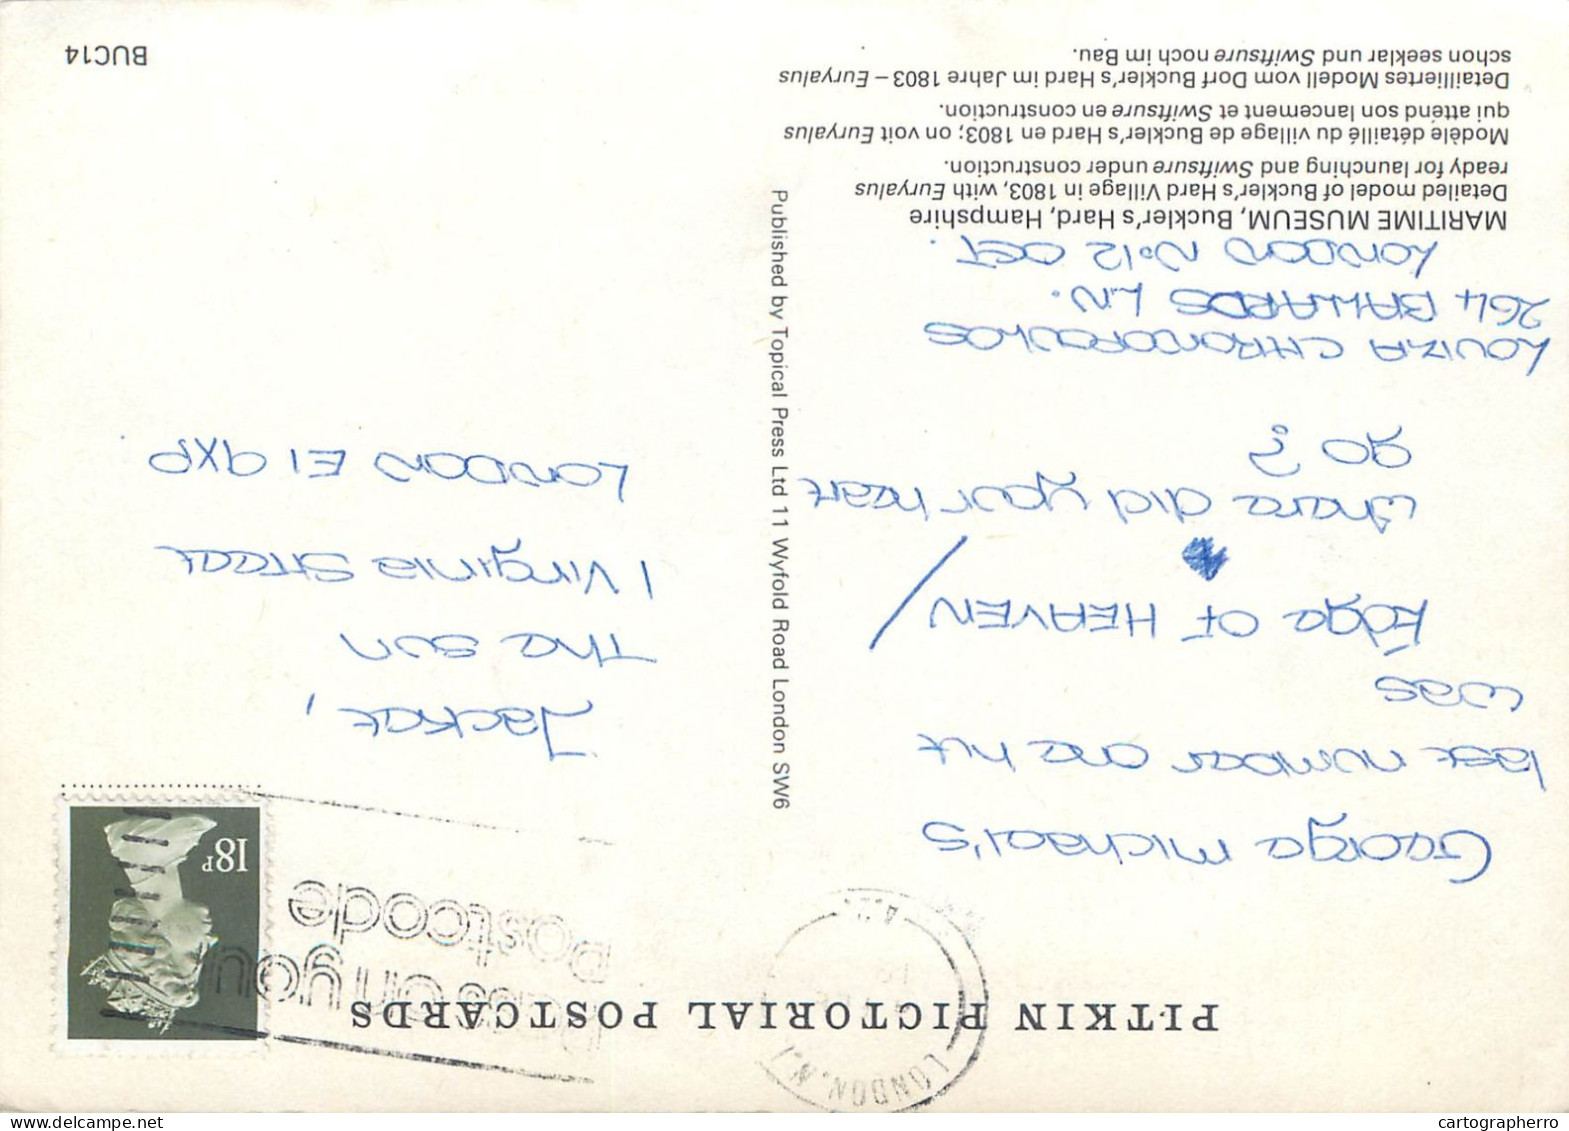 PITKIN PICTORIAL POSTCARDS
LONDON. N.1
Pass on your
Postcode
18P
George Michael's
last number one hit
was
Edge OF HEAVEN /
where did your heart
go ?
LOUIZA CHRONOPOULOS
264 BALLARDS LN.
LONDON N.12 OCT.
Jackat,
The Sun
1 Virginia Street
LONDON E1 9XP
Published by Topical Press Ltd 11 Wyfold Road London SW6
MARITIME MUSEUM, Buckler's Hard, Hampshire
Detailed model of Buckler's Hard Village in 1803, with Euryalus
ready for launching and Swiftsure under construction.
Modèle détaillé du village de Buckler's Hard en 1803; on voit Euryalus
qui attend son lancement et Swiftsure en construction.
Detailliertes Modell vom Dorf Buckler's Hard im Jahre 1803 – Euryalus
schon seeklar und Swiftsure noch im Bau.
BUC14
cartographerro